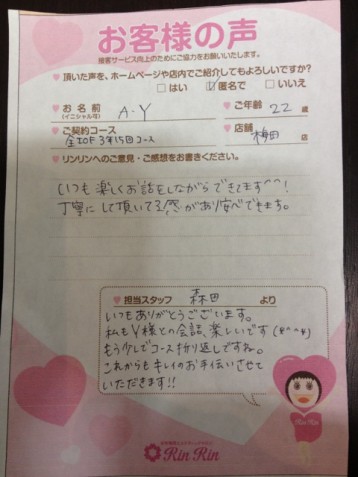 お客様の声
接客サービス向上のためにご協力をお願いいたします。
頂いた声を、ホームページや店内でご紹介してもよろしいですか？
はい 匿名で いいえ
お名前 (イニシャル可) A-Y ご年齢 22 歳
ご契約コース 全身OF3年15回コース 店舗 梅田 店
リンリンへのご意見・ご感想をお書きください。
いつも楽しくお話をしながらできてます^^!
丁寧にして頂いてる感があり安心できます。
担当スタッフ 森田 より
いつもありがとうございます。
私もY様との会話、楽しいです(*^^*)
もう少しでコース折り返しですね。
これからもキレイのお手伝いさせて
いただきます!!
Rin Rin
Rin Rin